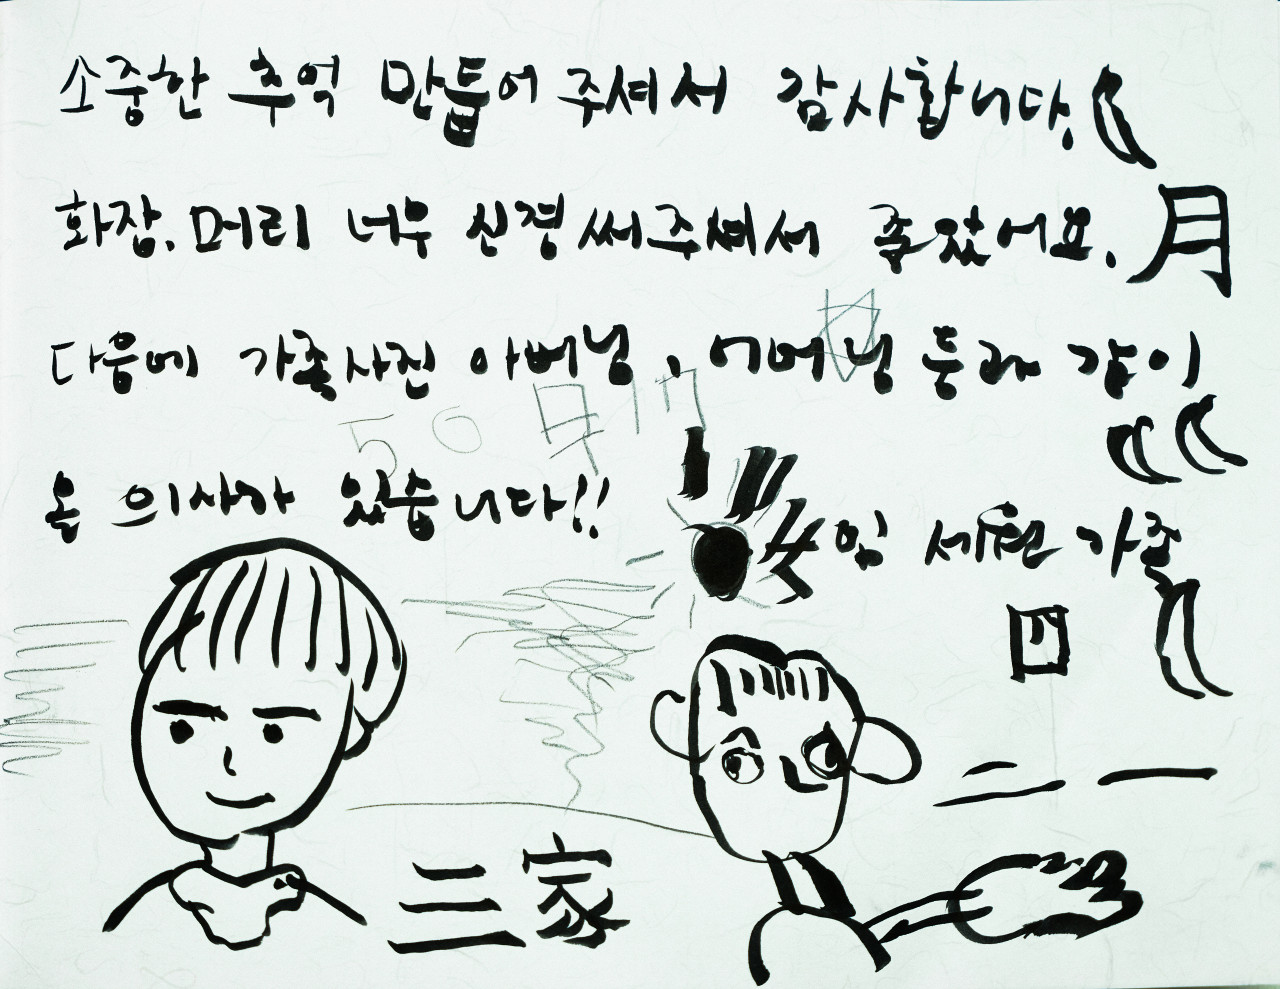 소중한 추억 만들어 주셔서 감사합니다.
화장, 머리 너무 신경써주셔서 좋았어요.
月
다음에 가족사진 아버님, 어머님 등래 같이
50
올 의사가 있습니다!!
임 세원 가족
四
二 一
三 家